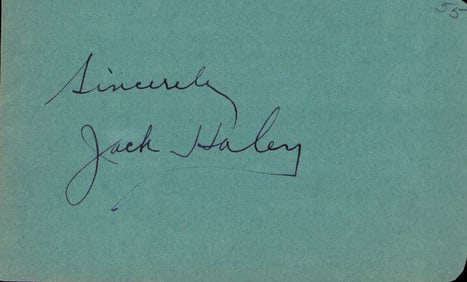 55
Sincerely
Jack Haley